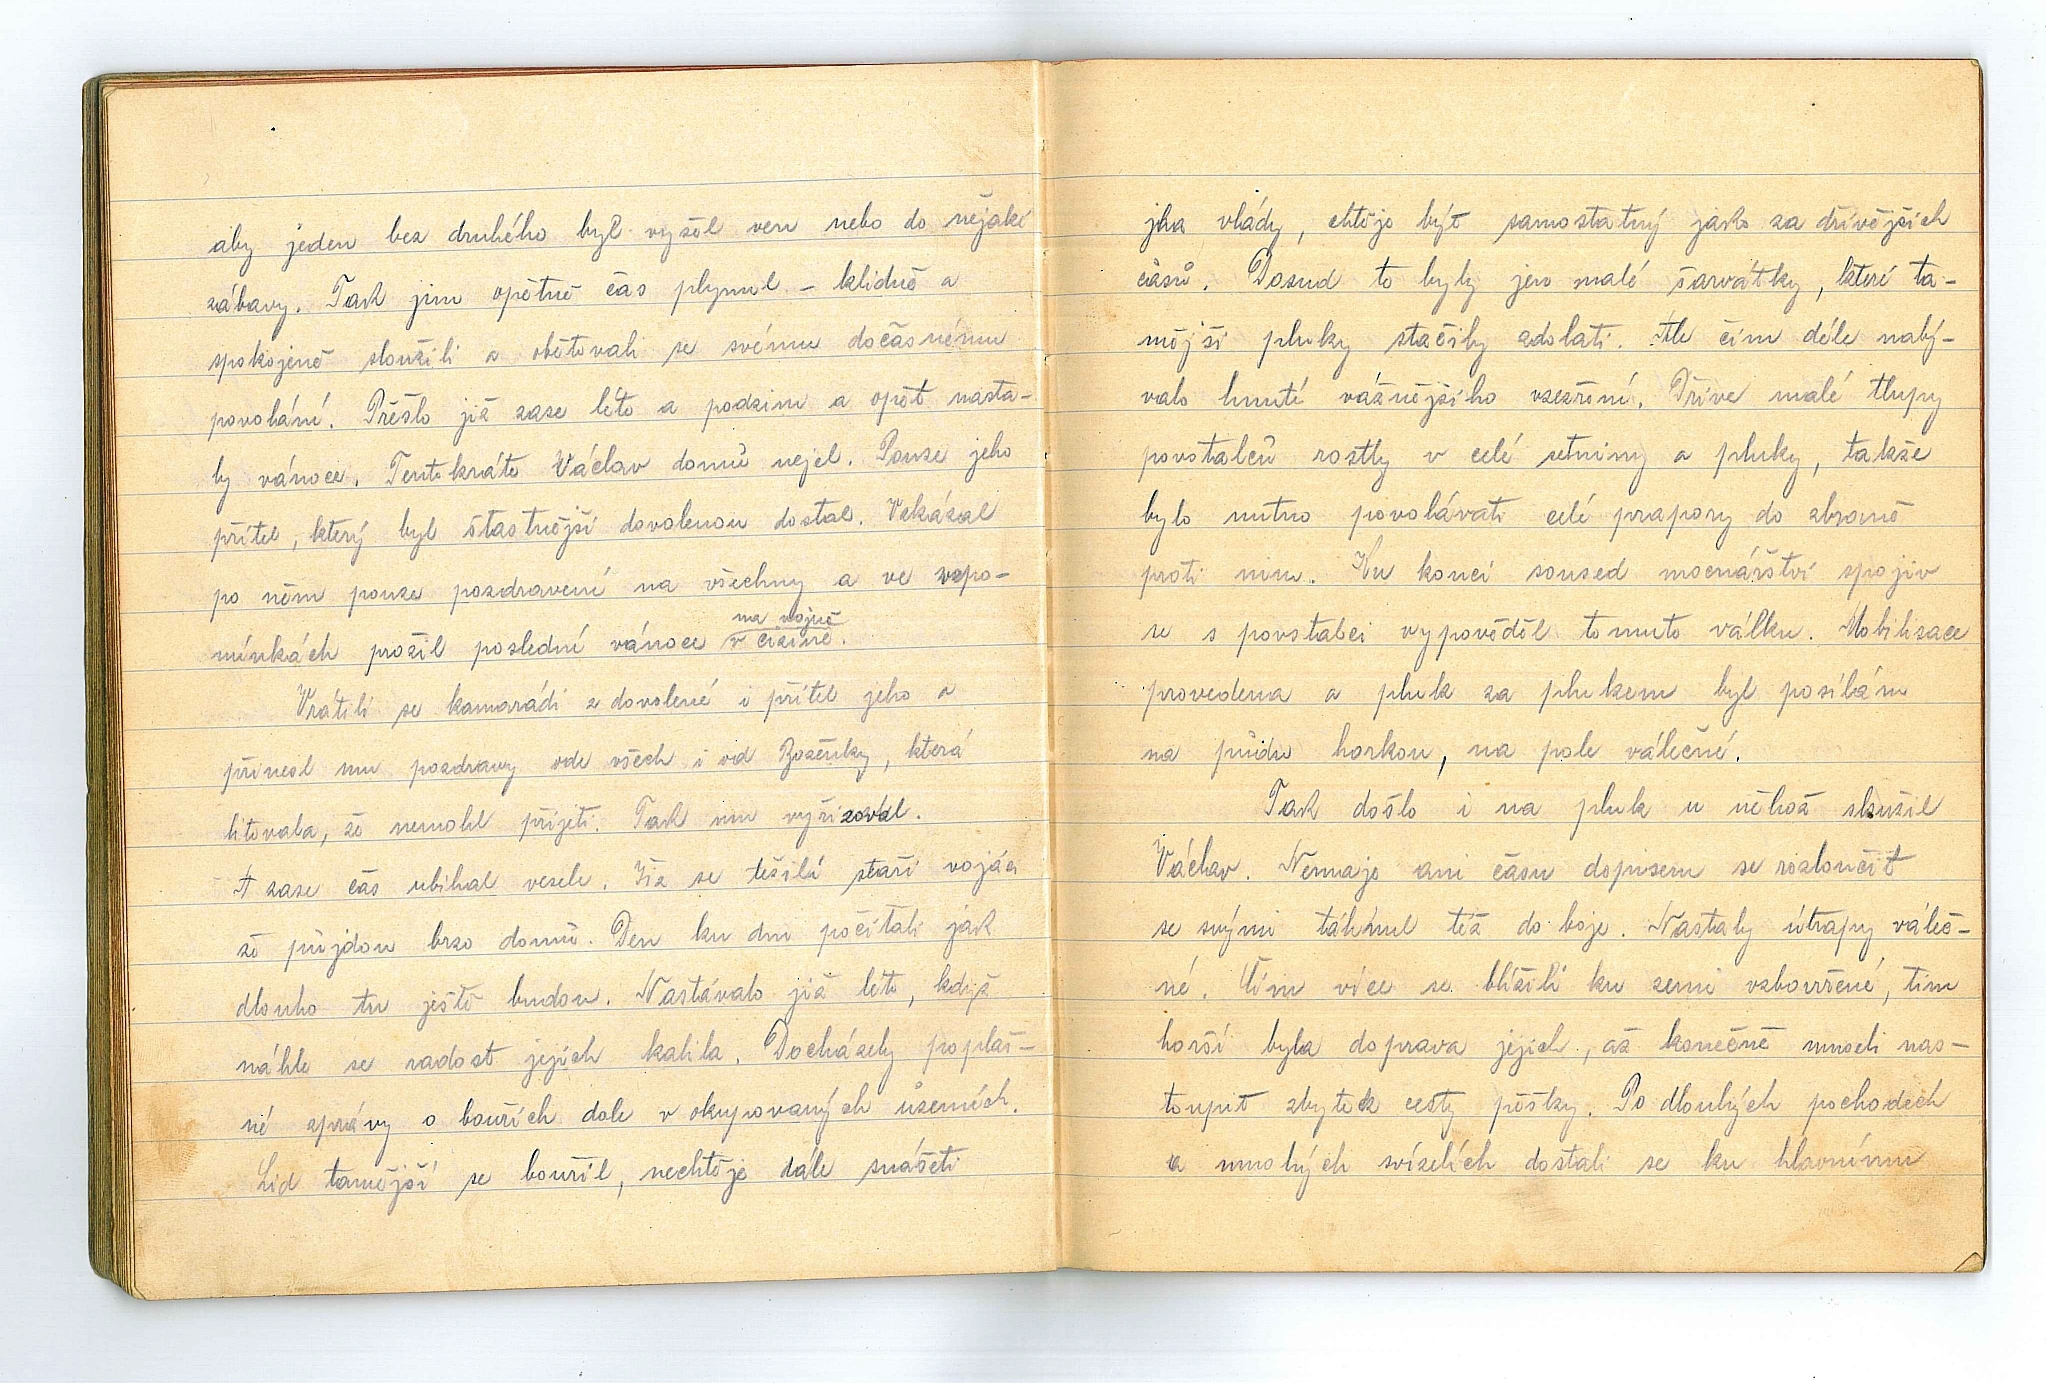 aby jeden bez druhého byl vyšel ven nebo do nějaké
zábavy. Tak jim opětně čas plynul – klidně a
spokojeně sloužili a obětovali se svému dočasnému
povolání. Přešlo již zase léto a podzim a opět nasta-
ly vánoce. Tentokráte Václav domů nejel. Pouze jeho
přítel, který byl šťastnější dovolenou dostal. Vzkázal
po něm pouze pozdravení na všechny a ve vzpo-
mínkách prožil poslední vánoce na vojně
v cizině.
Vrátili se kamarádi z dovolené i přítel jeho a
přinesl mu pozdravy ode všech i od Boženky, která
litovala, že nemohl přijeti. Tak mu vyřizoval.
A zase čas ubíhal vesele. Již se těšili staří vojáci
že půjdou brzo domů. Den ku dni počítali jak
dlouho tu ještě budou. Nastávalo již léto, když
náhle se radost jejich kalila. Docházely poplaš-
né zprávy o bouřích dole v okupovaných územích.
Lid tamější se bouřil, nechtěje dále snášeti
jha vlády, chtěje být samostatný jako za dřívějších
časů. Dosud to byly jen malé šarvátky, které ta-
mější pluky stačily zdolati. Ale čím déle nabý-
valo hnutí vážnějšího vzezření. Dříve malé tlupy
povstalců rostly v celé setniny a pluky, takže
bylo nutno povolávati celé prapory do zbraně
proti nim. Ku konci soused mocnářství spojiv
se s povstalci vypověděl tomuto válku. Mobilisace
provedena a pluk za plukem byl posílán
na půdu horkou, na pole válečné.
Tak došlo i na pluk u něhož sloužil
Václav. Nemaje ani času dopisem se rozloučit
se svými táhnul též do boje. Nastaly útrapy váleč-
né. Čím více se blížili ku zemi vzbouřené, tím
horší byla doprava jejich, až konečně museli nas-
toupit zbytek cesty pěšky. Po dlouhých pochodech
a mnohých svízelích dostali se ku hlavnímu